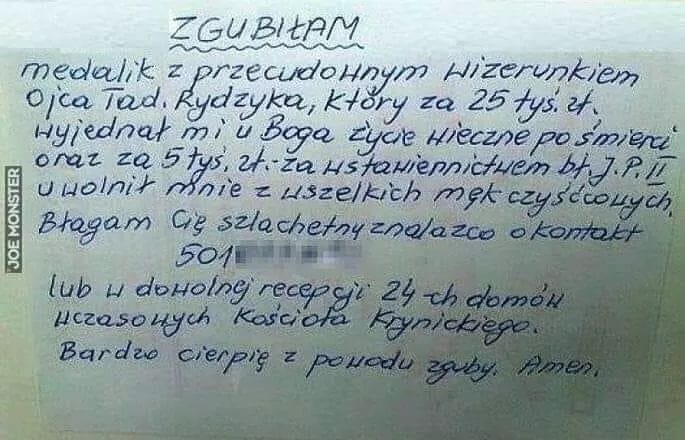 ZGUBIŁAM
medalik z przecudownym wizerunkiem
Ojca Tad. Rydzyka, który za 25 tyś. zł.
wyjednał mi u Boga życie wieczne po śmierci
oraz za 5 tyś. zł.-za wstawiennictwem bł. J.P. II
uwolnił mnie z wszelkich mąk czyśćcowych.
Błagam Cię szlachetny znalazco o kontakt
501
lub w dowolnej recepcji 24-ch domów
wczasowych Kościoła Krynickiego.
Bardzo cierpię z powodu zguby. Amen.
JOE MONSTER